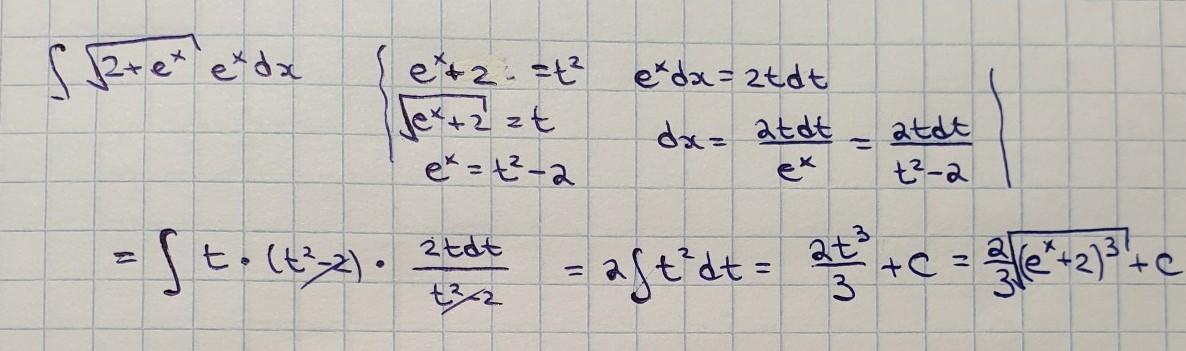 ∫ √(2+eˣ) eˣ dx { eˣ+2 = t² eˣdx = 2tdt
√(eˣ+2) = t dx = 2tdt/eˣ = 2tdt/(t²-2) |
eˣ = t²-2
= ∫ t · (t²-2) · 2tdt/(t²-2) = 2∫t²dt = 2t³/3 + C = 2/3 √((eˣ+2)³) + C